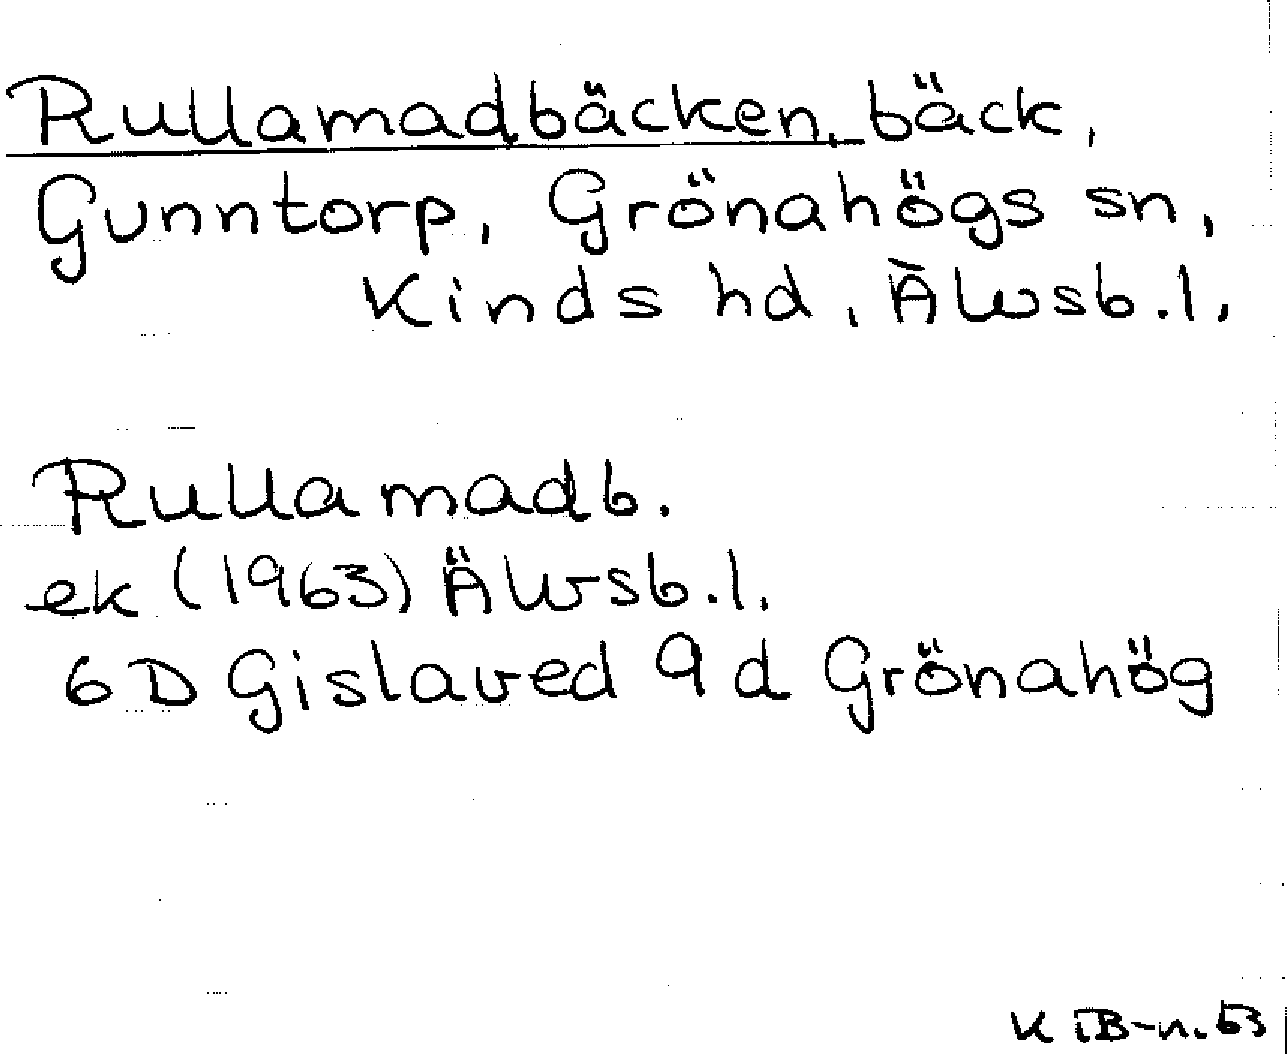 Rullamadbäcken, bäck,
Gunntorp, Grönahögs sn,
Kinds hd, Älvsb.l.
Rullamadb.
ek (1963) Älvsb.l.
6D Gislaved 9d Grönahög